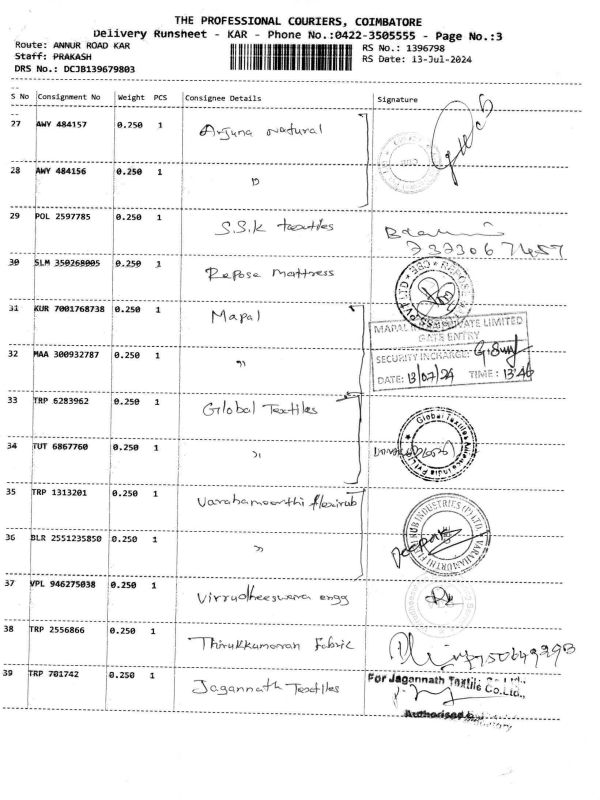 THE PROFESSIONAL COURIERS, COIMBATORE
Delivery Runsheet - KAR - Phone No.:0422-3505555 - Page No.:3
Route: ANNUR ROAD KAR
RS No.: 1396798
Staff: PRAKASH
RS Date: 13-Jul-2024
DRS No.: DCJB139679803
S No Consignment No Weight PCS Consignee Details Signature
27 AWY 484157 0.250 1 Arjuna Natural
28 AWY 484156 0.250 1 "
29 POL 2597785 0.250 1 S.S.K textiles
30 SLM 350268005 0.250 1 Repose Mattress
31 KUR 7001768738 0.250 1 Mapal
MAPAL PRIVATE LIMITED
GATE ENTRY
32 MAA 300932787 0.250 1 "
SECURITY INCHARGE:
DATE: 13/07/24 TIME: 13:46
33 TRP 6283962 0.250 1 Global Textiles
Global Textiles Alliance India Pvt Ltd
34 TUT 6867760 0.250 1 "
35 TRP 1313201 0.250 1 Varahamoorthi flexirub
36 BLR 2551235850 0.250 1 "
37 VPL 946275038 0.250 1 Virrudheeswara engg
38 TRP 2556866 0.250 1 Thirukkumaran Fabric
39 TRP 701742 0.250 1 Jagannath Textiles
For Jagannath Textile Co.Ltd.,
Authorised